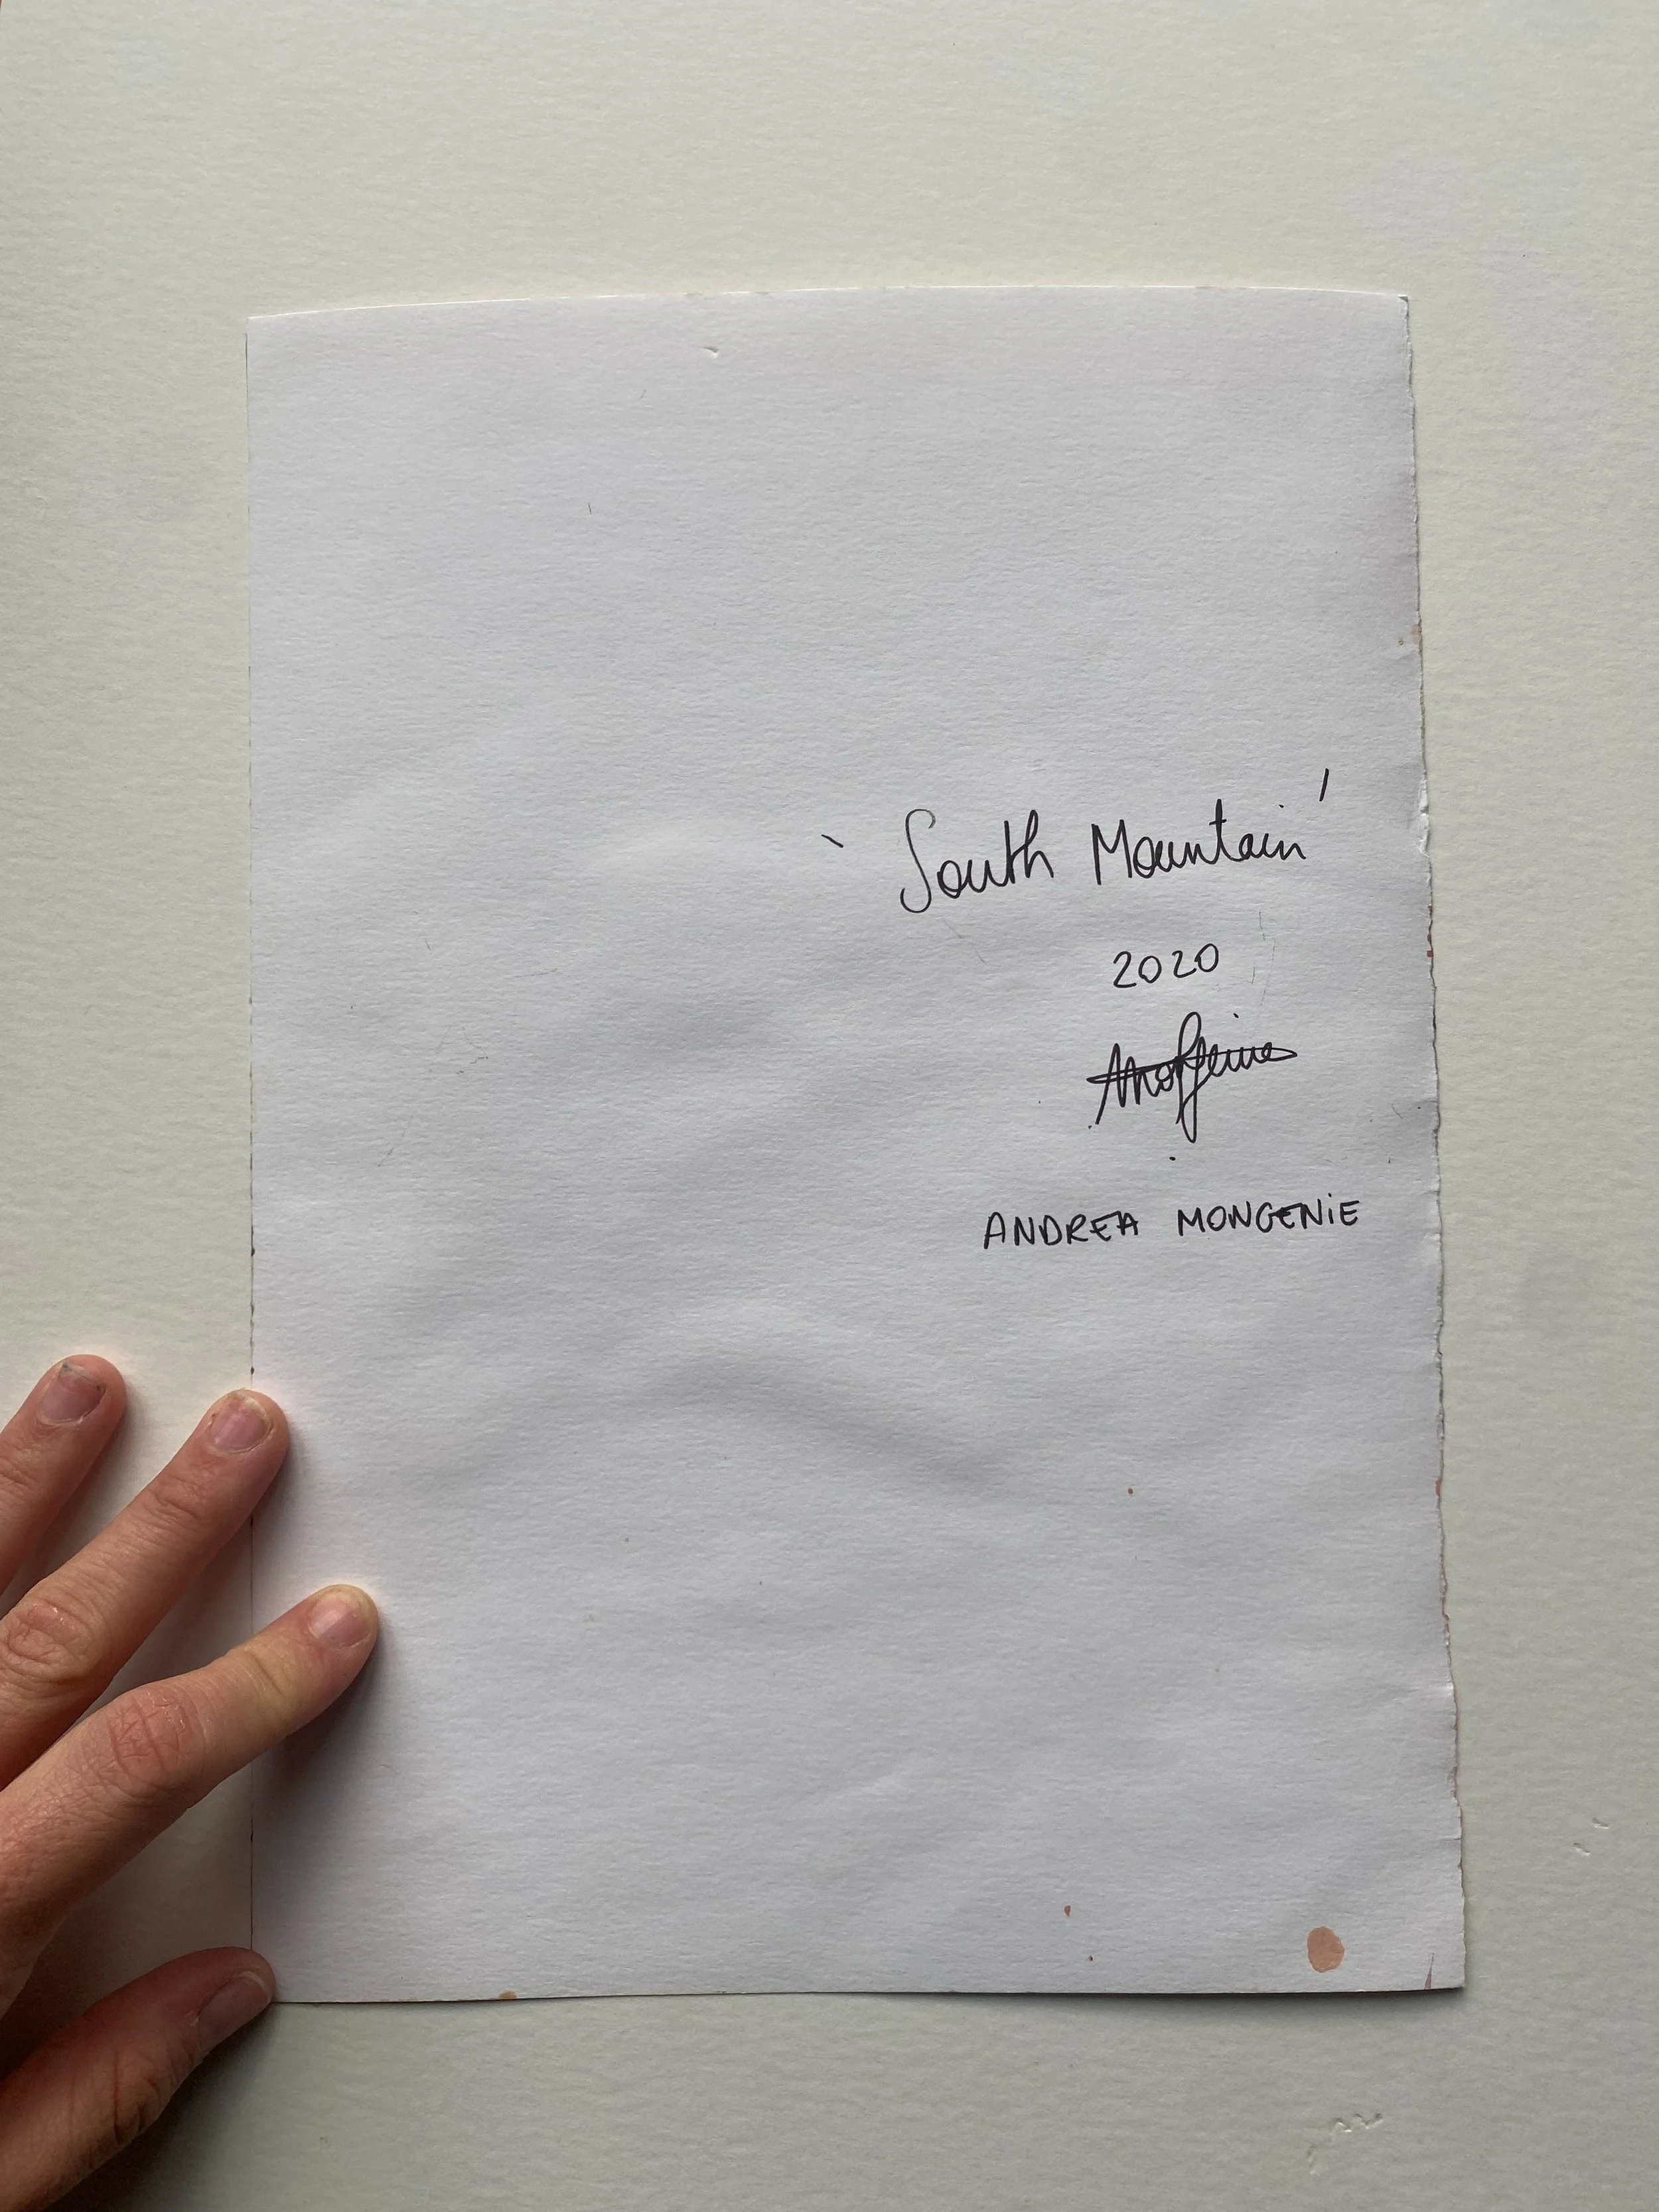 'South Mountain'
2020
ANDREA MONGENIE